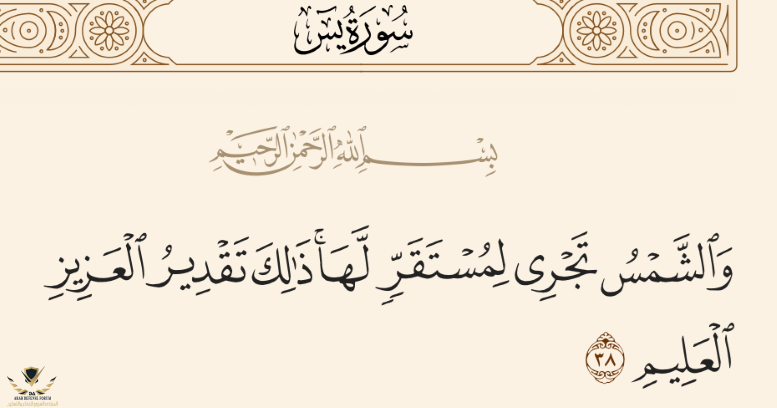 سُورَةُ يسٓ
بِسْمِ ٱللَّهِ ٱلرَّحْمَٰنِ ٱلرَّحِيمِ
وَٱلشَّمْسُ تَجْرِى لِمُسْتَقَرٍّ لَّهَا ۚ ذَٰلِكَ تَقْدِيرُ ٱلْعَزِيزِ
ٱلْعَلِيمِ ٣٨
DA
ARAB DEFENSE FORUM